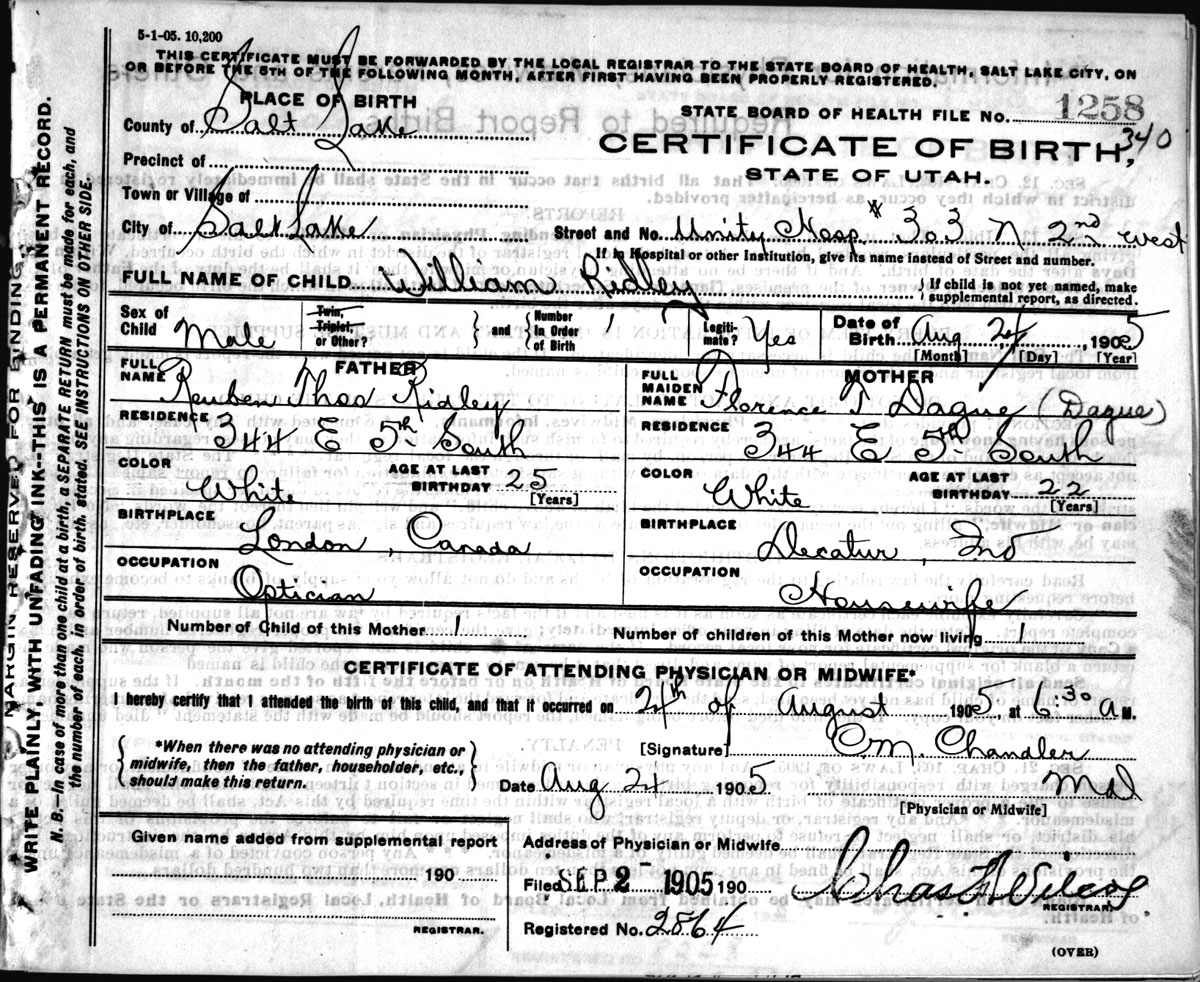 5-1-05. 10,200
THIS CERTIFICATE MUST BE FORWARDED BY THE LOCAL REGISTRAR TO THE STATE BOARD OF HEALTH, SALT LAKE CITY, ON
OR BEFORE THE 5TH OF THE FOLLOWING MONTH, AFTER FIRST HAVING BEEN PROPERLY REGISTERED.
PLACE OF BIRTH
STATE BOARD OF HEALTH FILE No. 1258
County of Salt Lake
CERTIFICATE OF BIRTH, 340
Precinct of
STATE OF UTAH.
Town or Village of
City of Salt Lake
Street and No. Unity Hosp 303 N 2nd West
If in Hospital or other Institution, give its name instead of Street and number.
FULL NAME OF CHILD William Ridley
If child is not yet named, make
supplemental report, as directed.
Sex of Child Male
Twin, Triplet, or Other?
and Number in Order of Birth 1
Legiti-mate? Yes
Date of Birth Aug 24, 1905
[Month] [Day] [Year]
FATHER
FULL NAME Reuben Thos Ridley
RESIDENCE 344 E 5th South
COLOR White
AGE AT LAST BIRTHDAY 25
[Years]
BIRTHPLACE London, Canada
OCCUPATION Optician
MOTHER
FULL MAIDEN NAME Florence T Dague (Dague)
RESIDENCE 344 E 5th South
COLOR White
AGE AT LAST BIRTHDAY 22
[Years]
BIRTHPLACE Decatur, Ind
OCCUPATION Housewife
Number of Child of this Mother 1
Number of children of this Mother now living 1
CERTIFICATE OF ATTENDING PHYSICIAN OR MIDWIFE*
I hereby certify that I attended the birth of this child, and that it occurred on 24th of August 1905, at 6:30 a M.
*When there was no attending physician or
midwife, then the father, householder, etc.,
should make this return.
[Signature] C M. Chandler
Date Aug 24 1905
Md
[Physician or Midwife]
Given name added from supplemental report
190
REGISTRAR.
Address of Physician or Midwife
Filed SEP 2 1905 190 Chas Wilcox
REGISTRAR.
Registered No. 2864
(OVER)
MARGIN RESERVED FOR BINDING.
WRITE PLAINLY, WITH UNFADING INK---THIS IS A PERMANENT RECORD.
N. B.—In case of more than one child at a birth, a SEPARATE RETURN must be made for each, and
the number of each, in order of birth, stated. SEE INSTRUCTIONS ON OTHER SIDE.